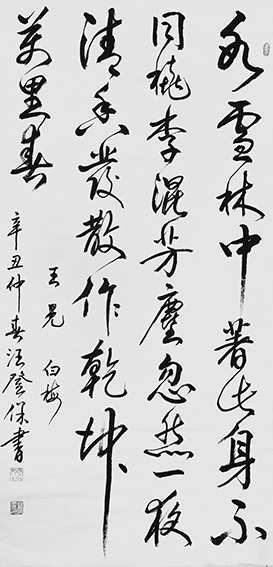 冰雪林中著此身不
同桃李混芳塵忽然一夜
清香發散作乾坤
萬里春
王冕 白梅
辛丑仲春汪登保書